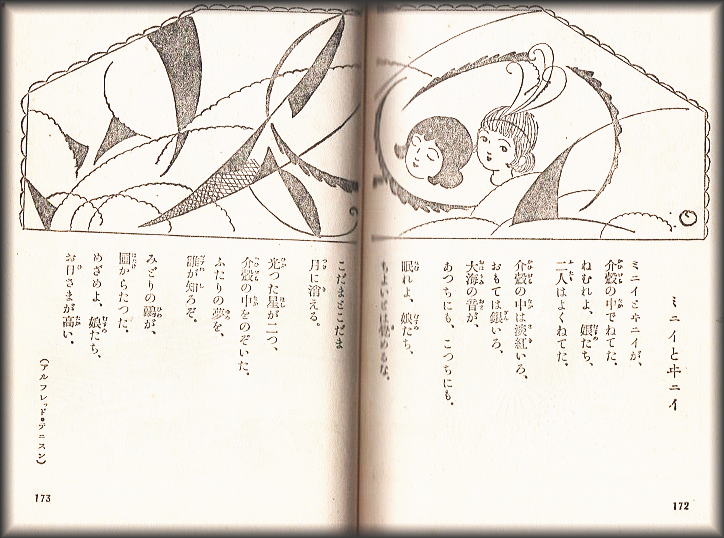 ミニイとヰニイ
ミニイとヰニイが、
介殻の中でねてた。
ねむれよ、娘たち、
二人はよくねてた。
介殻の中は淡紅いろ、
おもては銀いろ、
大海の音が、
あつちにも、こつちにも。
眠れよ、娘たち、
ちよいとは
めるな。
172
こだまとこだま
月に消える。
光つた星が二つ、
介殻の中をのぞいた、
ふたりの夢を、
誰が知ろぞ。
みどりの鷽が、
園からたつた、
めざめよ、娘たち、
お日さまが高い。
(アルフレッド・テニスン)
173